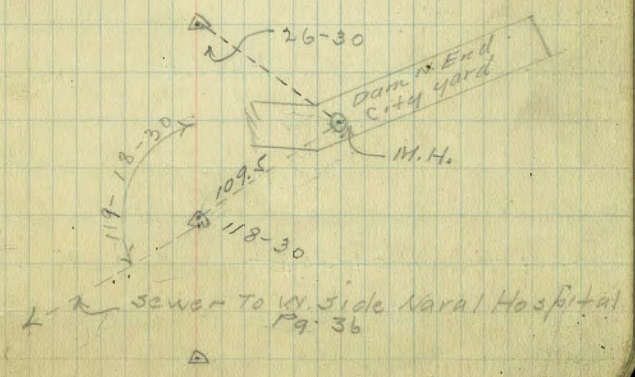 26-30
Dam N. End
City Yard
M.H.
119-18-30
109.5
118-30
Sewer To W. Side Naval Hospital
Pg. 36